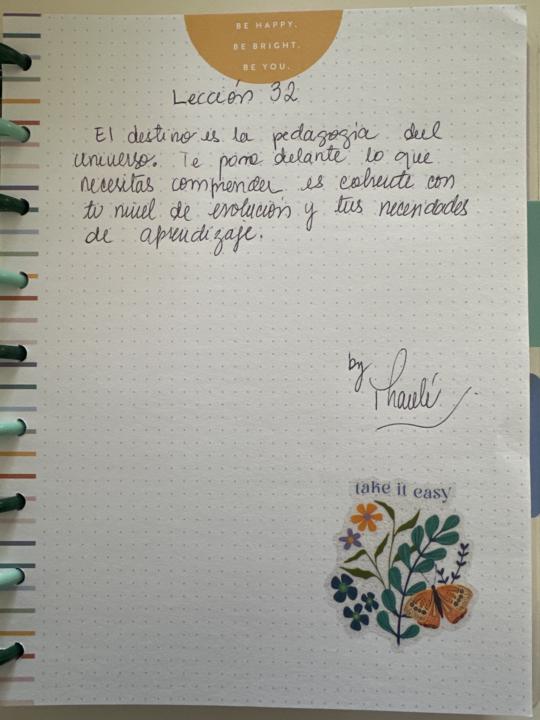 BE HAPPY.
BE BRIGHT.
BE YOU.
Lección 32
El destino es la pedagogía del
universo. Te pone delante lo que
necesitas comprender es coherente con
tu nivel de evolución y tus necesidades
de aprendizaje.
by
take it easy